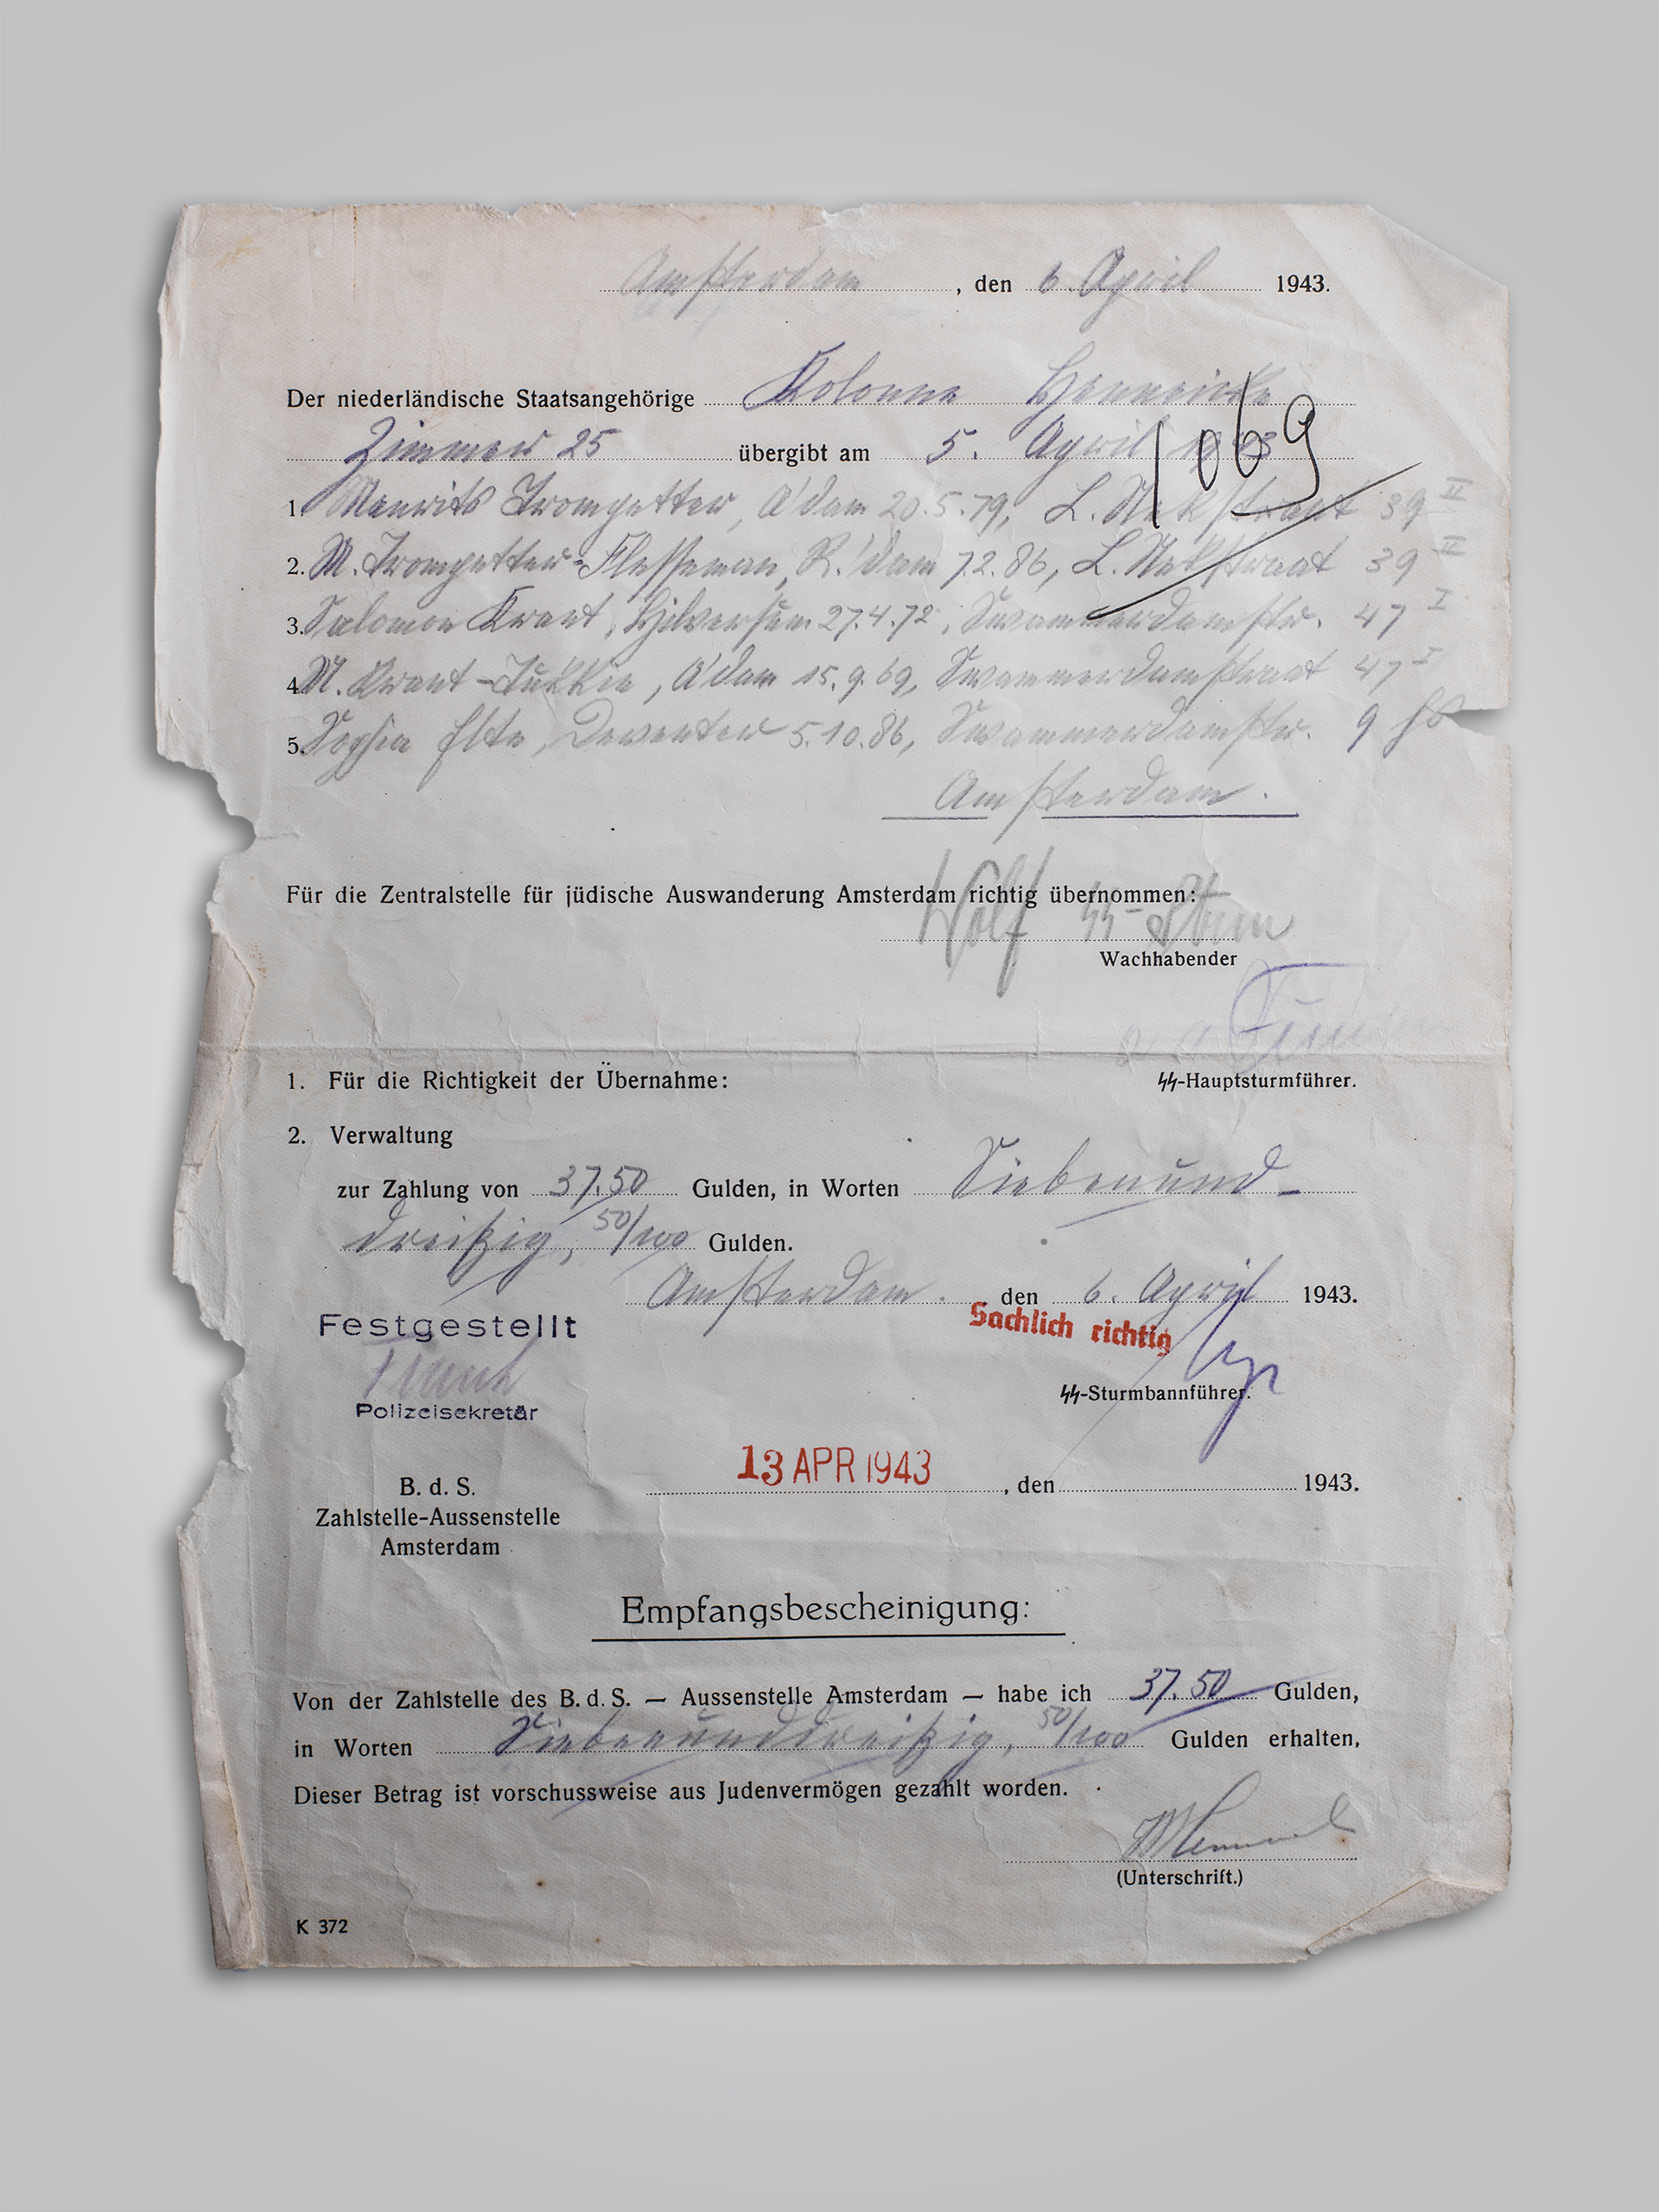 Amsterdam, den 6. April 1943.
Der niederländische Staatsangehörige Kolonne Henneicke
Zimmer 25 übergibt am 5. April 1943
1069
1. Maurits Trompetter, A'dam 20.5.79, L. Nekstraat 39 II
2. M. Trompetter-Flesseman, R.'dam 7.2.86, L. Nekstraat 39 II
3. Salomon Krant, Hilversum 27.4.72, Swammerdamstr. 47 I
4. M. Krant-Turkkie, A'dam 15.9.69, Swammerdamstraat 47 I
5. Sophia Elte, Deventer 5.10.86, Swammerdamstr. 9 hs
Amsterdam.
Für die Zentralstelle für jüdische Auswanderung Amsterdam richtig übernommen:
Wolf SS-Stum
Wachhabender
1. Für die Richtigkeit der Übernahme: SS-Hauptsturmführer.
2. Verwaltung
zur Zahlung von 37,50 Gulden, in Worten Siebenund-
dreißig, 50/100 Gulden.
Amsterdam. den 6. April 1943.
Festgestellt
Sachlich richtig
Polizeisekretär
SS-Sturmbannführer.
13 APR 1943, den 1943.
B. d. S.
Zahlstelle-Aussenstelle
Amsterdam
Empfangsbescheinigung:
Von der Zahlstelle des B. d. S. — Aussenstelle Amsterdam — habe ich 37.50 Gulden,
in Worten Siebenunddreißig, 50/100 Gulden erhalten,
Dieser Betrag ist vorschussweise aus Judenvermögen gezahlt worden.
(Unterschrift.)
K 372